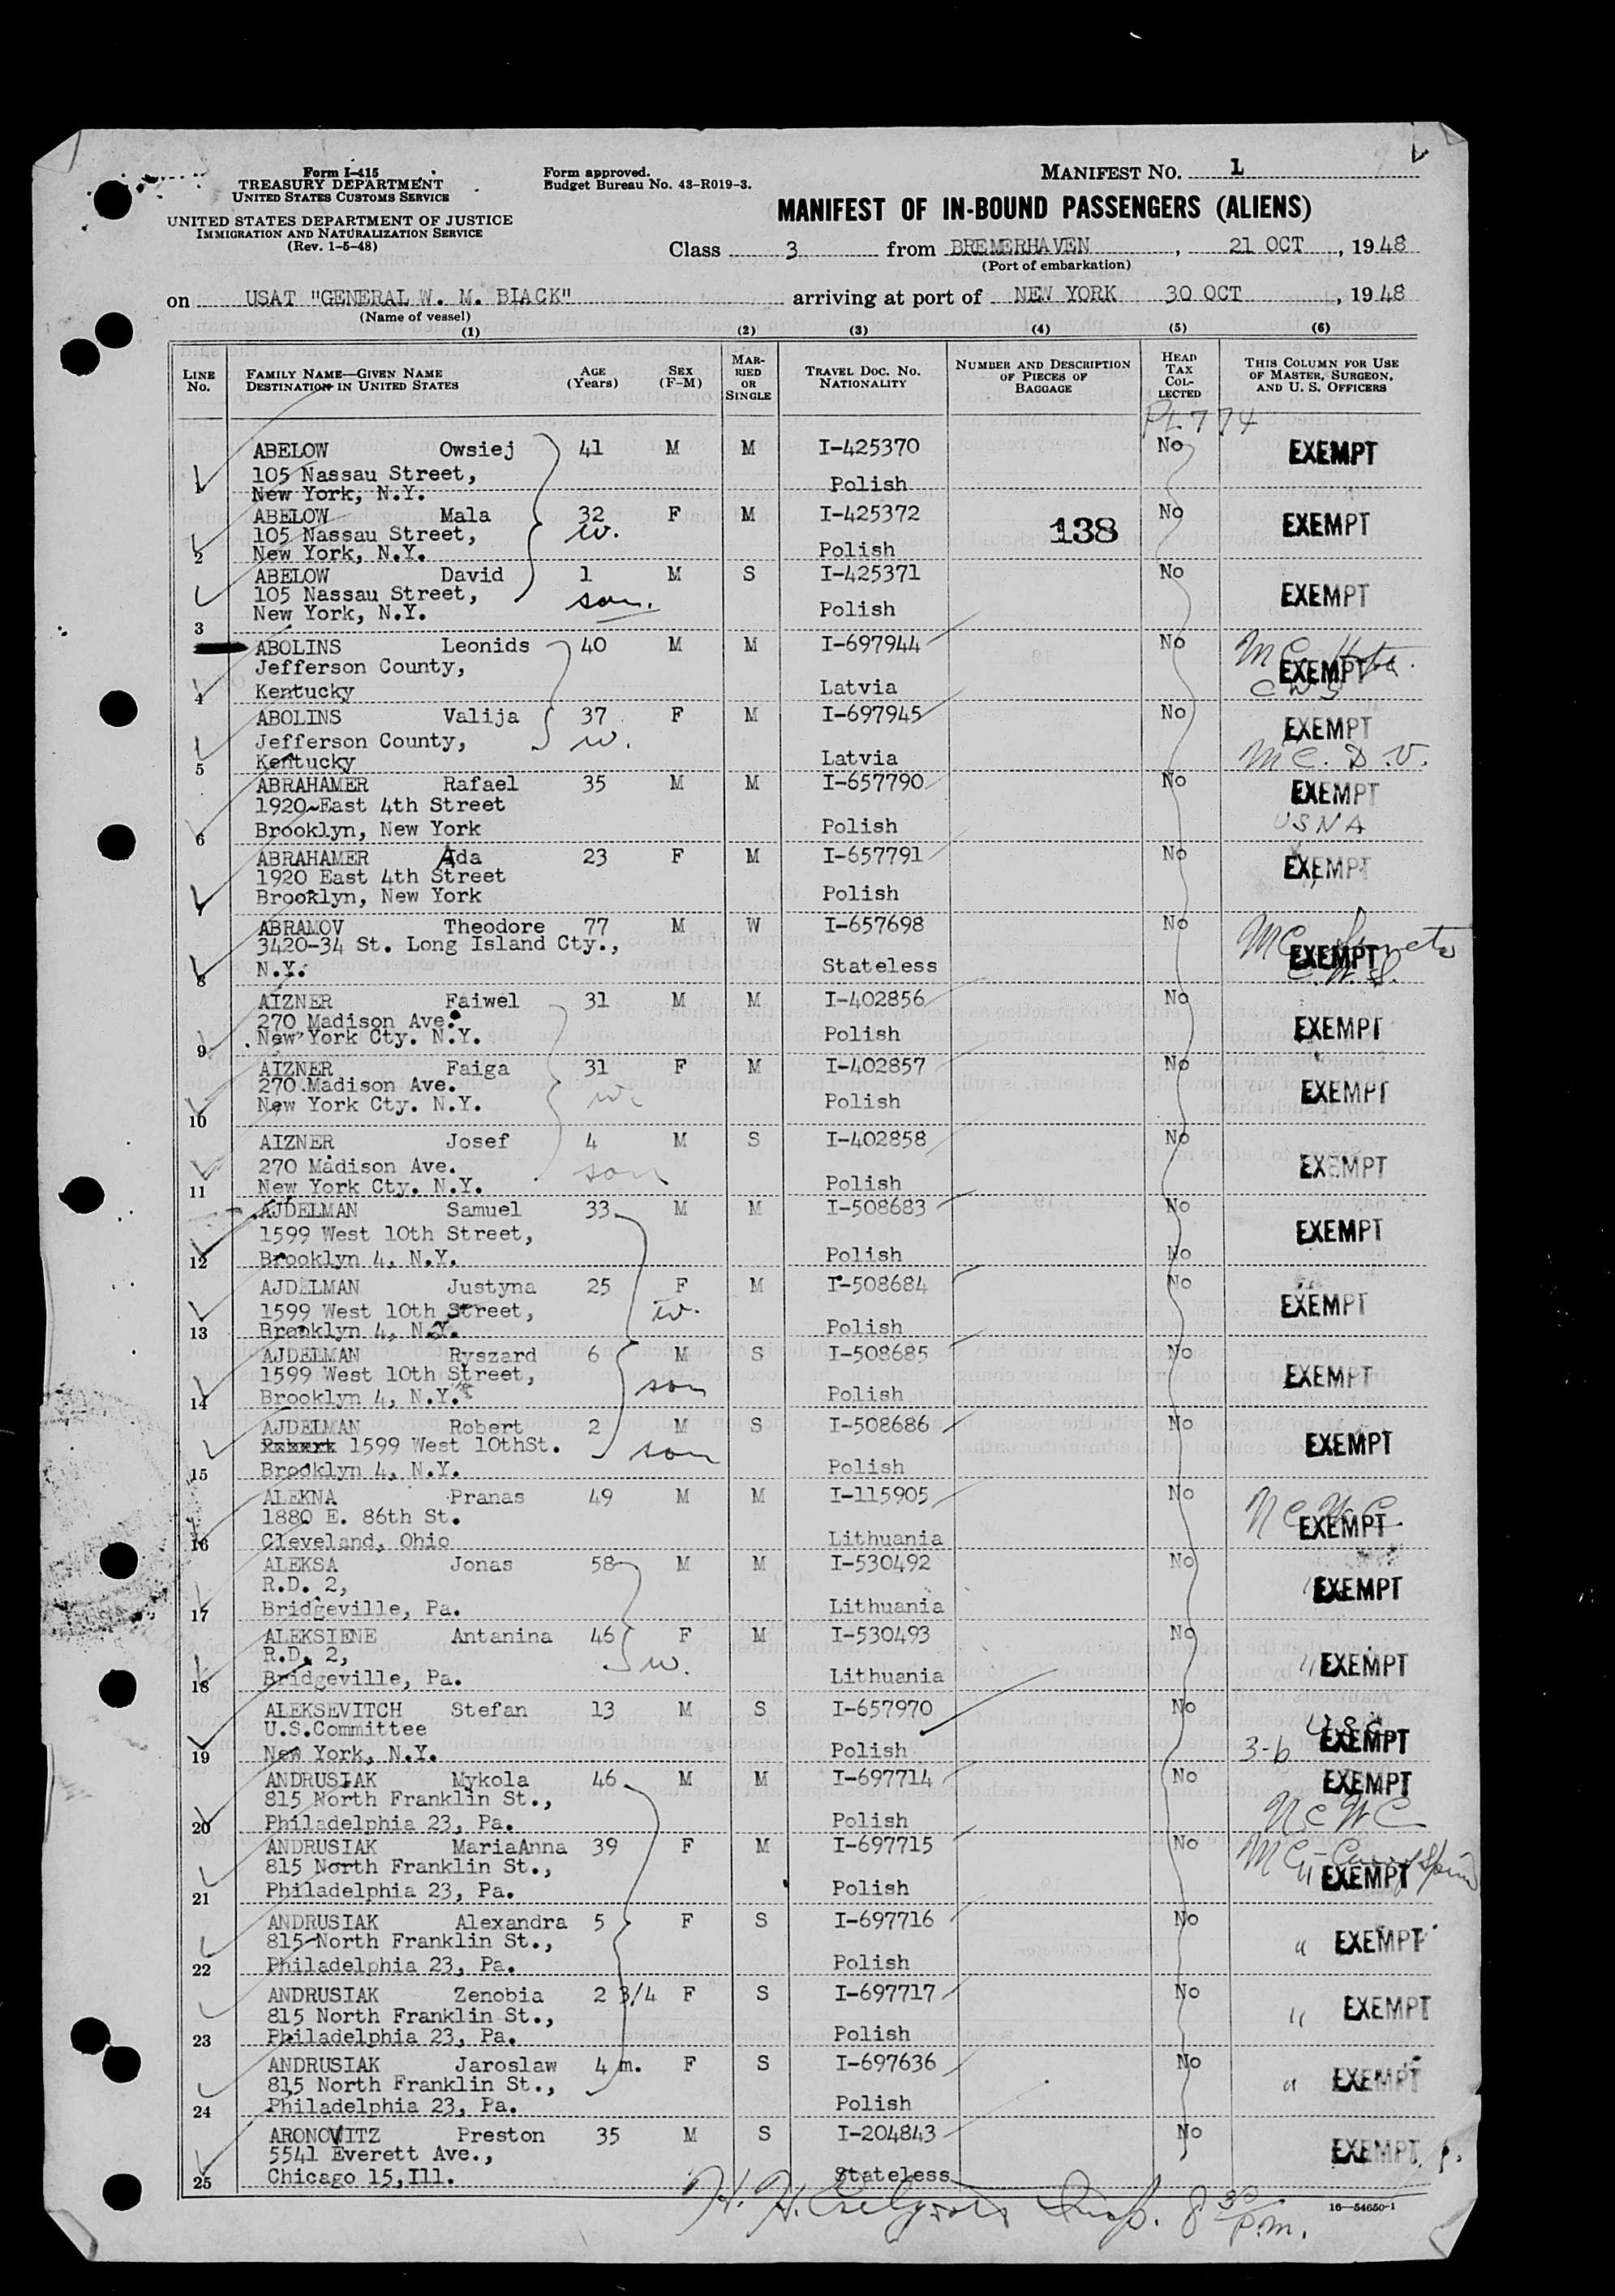 Form I-415
TREASURY DEPARTMENT
UNITED STATES CUSTOMS SERVICE
UNITED STATES DEPARTMENT OF JUSTICE
IMMIGRATION AND NATURALIZATION SERVICE
(Rev. 1-5-48)
Form approved.
Budget Bureau No. 43-R019-3.
MANIFEST NO. 1
MANIFEST OF IN-BOUND PASSENGERS (ALIENS)
Class 3 from BREMERHAVEN, 21 OCT, 1948
(Port of embarkation)
on USAT "GENERAL W. M. BLACK" arriving at port of NEW YORK 30 OCT, 1948
(Name of vessel)
(1) (2) (3) (4) (5) (6)
LINE No.
FAMILY NAME—GIVEN NAME
DESTINATION IN UNITED STATES
AGE (Years)
SEX (F-M)
MARRIED OR SINGLE
TRAVEL DOC. NO.
NATIONALITY
NUMBER AND DESCRIPTION OF PIECES OF BAGGAGE
HEAD TAX COLLECTED
THIS COLUMN FOR USE OF MASTER, SURGEON, AND U. S. OFFICERS
PL 774
ABELOW Owsiej 41 M M I-425370 No EXEMPT
105 Nassau Street,
1 New York, N.Y. Polish
ABELOW Mala 32 F M I-425372 138 No EXEMPT
105 Nassau Street, w.
2 New York, N.Y. Polish
ABELOW David 1 M S I-425371 No EXEMPT
105 Nassau Street, son.
New York, N.Y. Polish
3
ABOLINS Leonids 40 M M I-697944 No EXEMPT
Jefferson County,
4 Kentucky Latvia CWS
ABOLINS Valija 37 F M I-697945 No EXEMPT
Jefferson County, w.
5 Kentucky Latvia MC. D.V.
ABRAHAMER Rafael 35 M M I-657790 No EXEMPT
1920 East 4th Street
6 Brooklyn, New York Polish USNA
ABRAHAMER Ada 23 F M I-657791 No EXEMPT
1920 East 4th Street
7 Brooklyn, New York Polish
ABRAMOV Theodore 77 M W I-657698 No EXEMPT
3420-34 St. Long Island Cty.,
8 N.Y. Stateless C.W.S.
AIZNER Faiwel 31 M M I-402856 No EXEMPT
270 Madison Ave.
9 New York Cty. N.Y. Polish
AIZNER Faiga 31 F M I-402857 No EXEMPT
270 Madison Ave. w.
10 New York Cty. N.Y. Polish
AIZNER Josef 4 M S I-402858 No EXEMPT
270 Madison Ave. son
11 New York Cty. N.Y. Polish
AJDELMAN Samuel 33 M M I-508683 No EXEMPT
1599 West 10th Street,
12 Brooklyn 4, N.Y. Polish No
AJDELMAN Justyna 25 F M I-508684 No EXEMPT
1599 West 10th Street, w.
13 Brooklyn 4, N.Y. Polish
AJDELMAN Ryszard 6 M S I-508685 No EXEMPT
1599 West 10th Street, son
14 Brooklyn 4, N.Y. Polish
AJDELMAN Robert 2 M S I-508686 No EXEMPT
1599 West 10thSt. son
15 Brooklyn 4, N.Y. Polish
ALEKNA Pranas 49 M M I-115905 No EXEMPT
1880 E. 86th St. NCWC
16 Cleveland, Ohio Lithuania
ALEKSA Jonas 58 M M I-530492 No EXEMPT
R.D. 2,
17 Bridgeville, Pa. Lithuania
ALEKSIENE Antanina 46 F M I-530493 No " EXEMPT
R.D. 2, w.
18 Bridgeville, Pa. Lithuania
ALEKSEVITCH Stefan 13 M S I-657970 No EXEMPT
U.S.Committee USC
19 New York, N.Y. Polish 3-b
ANDRUSIAK Mykola 46 M M I-697714 No EXEMPT
815 North Franklin St.,
20 Philadelphia 23, Pa. Polish NCWC
ANDRUSIAK MariaAnna 39 F M I-697715 No " EXEMPT
815 North Franklin St.,
21 Philadelphia 23, Pa. Polish
ANDRUSIAK Alexandra 5 F S I-697716 No " EXEMPT
815 North Franklin St.,
22 Philadelphia 23, Pa. Polish
ANDRUSIAK Zenobia 2 3/4 F S I-697717 No " EXEMPT
815 North Franklin St.,
23 Philadelphia 23, Pa. Polish
ANDRUSIAK Jaroslaw 4 m. F S I-697636 No " EXEMPT
815 North Franklin St.,
24 Philadelphia 23, Pa. Polish
ARONOVITZ Preston 35 M S I-204843 No EXEMPT
5541 Everett Ave.,
25 Chicago 15,Ill. Stateless
H. H. Insp. 8 30 p.m.
16—54650-1